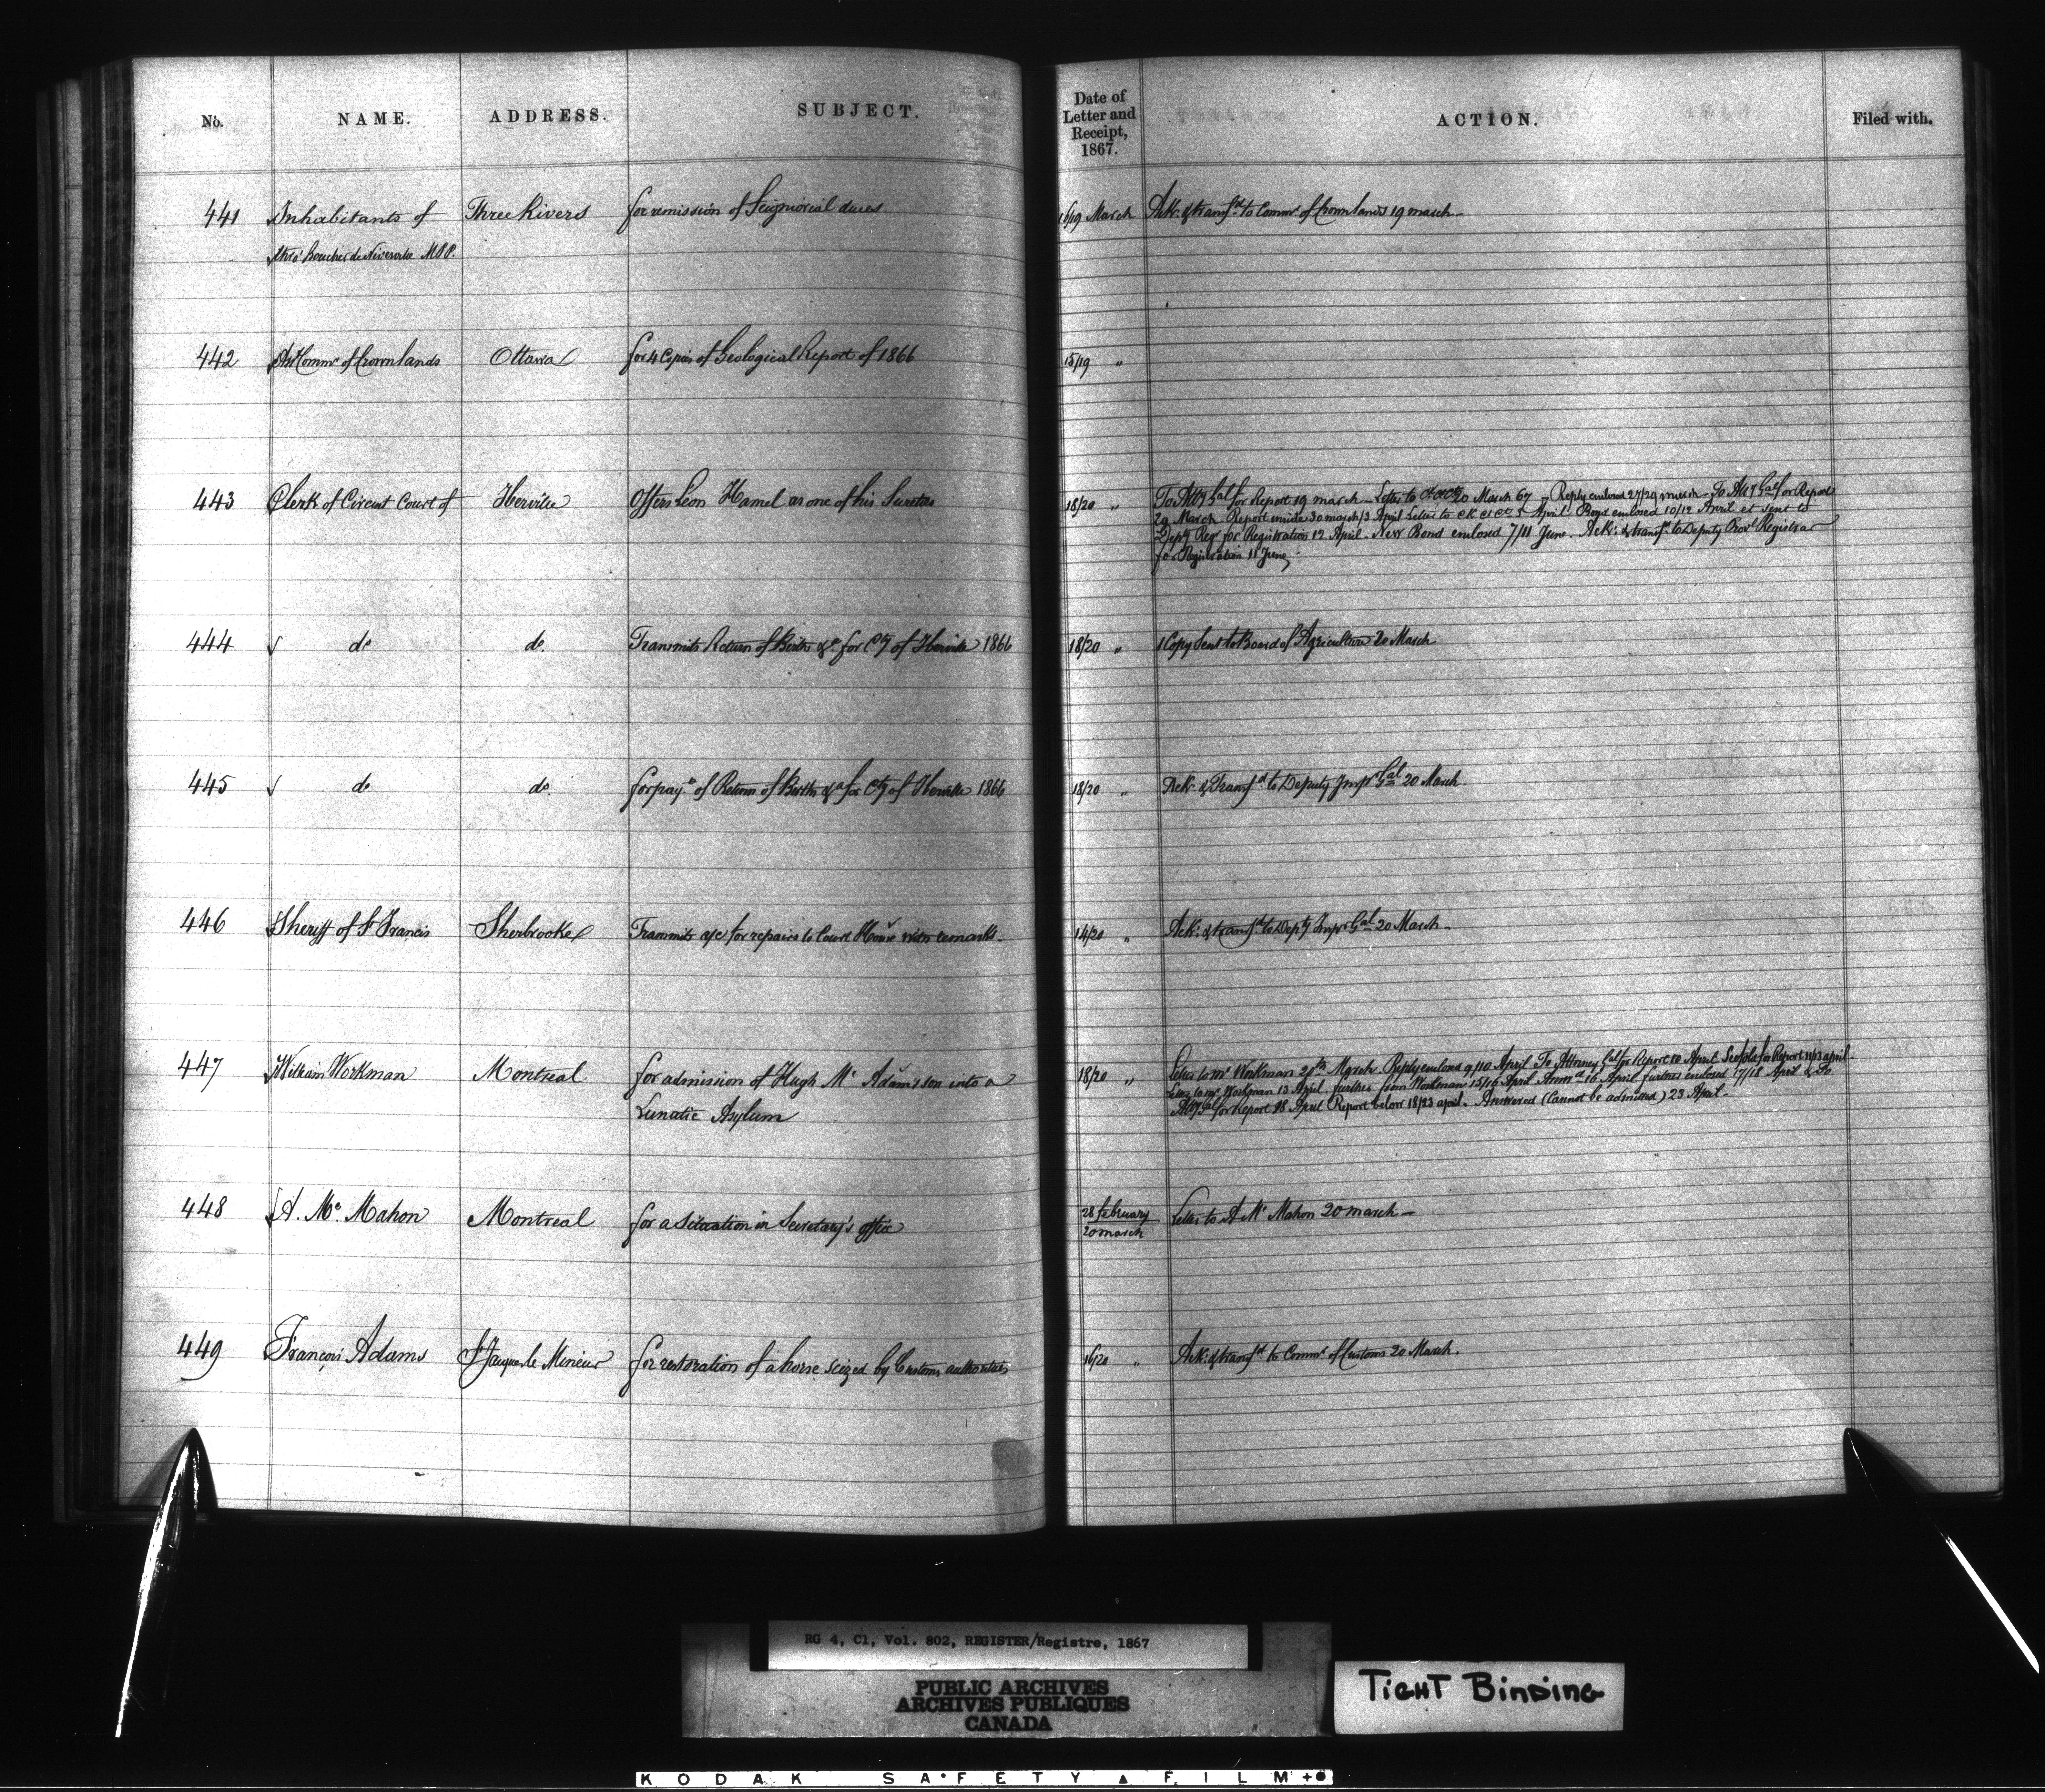 No. NAME. ADDRESS. SUBJECT. Date of Letter and Receipt, 1867. ACTION. Filed with.
441 Inhabitants of Three Rivers for remission of Seigniorial dues 16/19 March Ack: & transfd to Commr of Crown lands 19 march
thro' Boucher de Niverville M.P.P.
442 Asst Commr of Crown lands Ottawa for 4 Copies of Geological Report of 1866 15/19 "
443 Clerk of Circuit Court of Iberville Offers Leon Hamel as one of his Sureties 18/20 " To Atty Gal for Report 19 march - Letter to 20 March 67 - Reply enclosed 27/29 march - To Atty Gal for Report
29 March Report inside 30 march/3 April Letter to Ck Ct Ct 5 April Bond enclosed 10/12 April et sent to
Depty Regr for Registration 12 April. New Bond enclosed 7/11 June. Ack: & transfd to Deputy Provl Registrar
for Registration 11 June
444 do do Transmits Return of Births &c for Cty of Iberville 1866 18/20 " 1 Copy sent to Board of Agriculture 20 March
445 do do for payt of Return of Births &c for Cty of Iberville 1866 18/20 " Ack: & Transfd to Deputy Inspr Gal 20 March
446 Sheriff of St Francis Sherbrooke Transmits a/c for repairs to Court House with remarks. 14/20 " Ack: & transfd to Depty Inspr Gal 20 March.
447 William Workman Montreal for admission of Hugh Mc Adamson into a 18/20 " Letter to Mr Workman 20th March. Reply enclosed 9/10 April To Attorney Gal for Report 10 April for Report 11/13 april
Lunatic Asylum Letter to Mr Workman 13 April. further from Workman 15/16 April Answd 16 April further enclosed 17/18 April & To
Atty Gal for Report 18 April Report below 18/23 april. Answered (Cannot be admitted) 23 April.
448 A. Mc Mahon Montreal for a Situation in Secretary's office 28 february Letter to A Mc Mahon 20 march
20 march
449 François Adams St Jacques le Mineur for restoration of a horse seized by Customs authorities 16/20 " Ack: & transfd to Commr of Customs 20 March.
RG 4, C1, Vol. 802, REGISTER/Registre, 1867
PUBLIC ARCHIVES
ARCHIVES PUBLIQUES
CANADA
TIGHT BINDING
KODAK SAFETY FILM